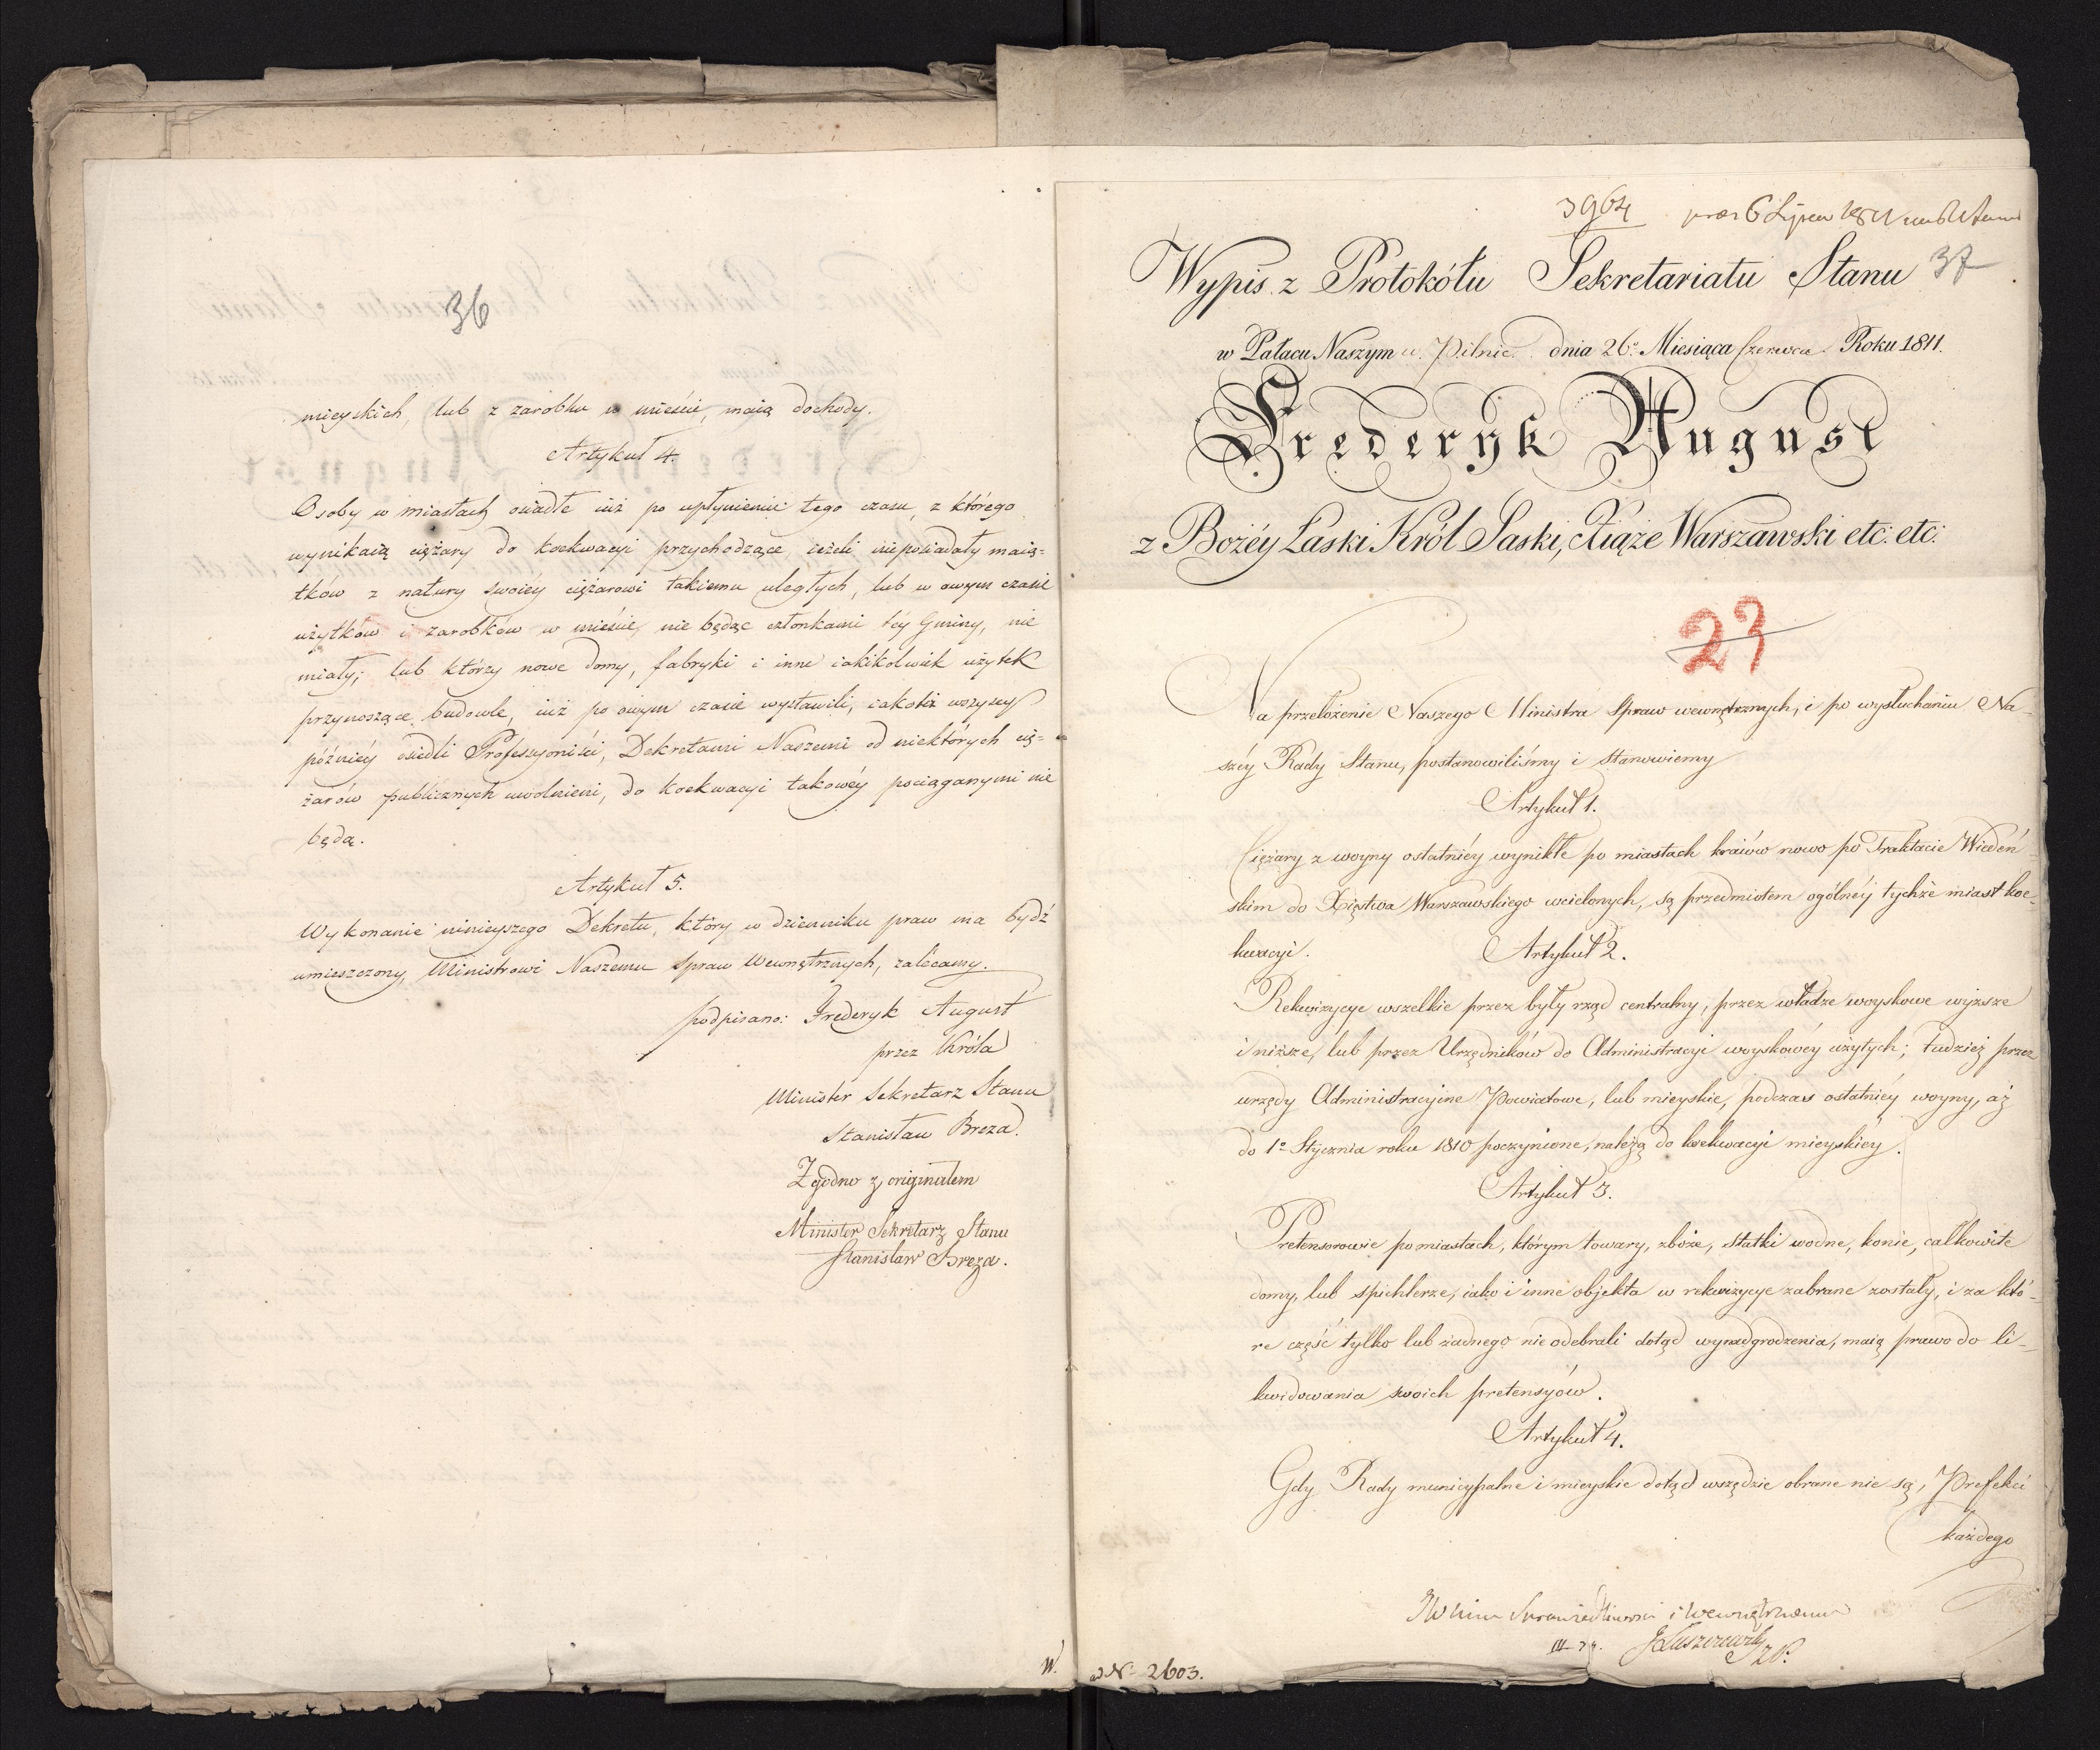 36
mieyskich, lub z zarobku w mieście, maią dochody.
Artykuł 4.
Osoby w miastach osiadłe iuż po upłynieniu tego czasu, z którego
wynikaią ciężary do koekwacyi przychodzące, ieżeli nieposiadały maią-
tków z natury swoiéy ciężarowi takiemu uległych, lub w owym czasie
użytków i zarobków w mieście, nie będąc członkami téy Gminy, nie
miały; lub którzy nowe domy, fabryki i inne iakikolwiek użytek
przynoszące budowle, iuż po owym czasie wystawili, iakoteż wszyscy
późniéy osiedli Professyoniści, Dekretami Naszemi od niektórych cię-
żarów publicznych uwolnieni, do koekwacyi takowéy pociąganymi nie
będą.
Artykuł 5.
Wykonanie ninieyszego Dekretu, który w dzienniku praw ma bydź
umieszczony, Ministrowi Naszemu Spraw Wewnętrznych, zalecamy.
podpisano: Frederyk August
przez Króla
Minister Sekretarz Stanu
Stanisław Breza.
Zgodno z originałem
Minister Sekretarz Stanu
Stanisław Breza.
W.
3964 6 Lipca 1811
Wypis z Protokółu Sekretariatu Stanu 37
w Pałacu Naszym w Pilnic. dnia 26º Miesiąca Czerwca Roku 1811.
Frederyk August
z Bożéy Łaski Król Saski, Xiąże Warszawski etc: etc:
23
Na przełożenie Naszego Ministra Spraw wewnętrznych, i po wysłuchaniu Na-
széy Rady Stanu, postanowiliśmy i stanowiemy
Artykuł 1.
Ciężary z woyny ostatniéy wynikłe po miastach kraiów nowo po Traktacie Wiedeń-
skim do Xięstwa Warszawskiego wcielonych, są przedmiotem ogólnéy tychże miast koe-
kwacyi.
Artykuł 2.
Rekwizycye wszelkie przez były rząd centralny, przez władze woyskowe wyższe
i niższe, lub przez Urzędników do Administracyi woyskowéy użytych; tudzież przez
urzędy Administracyine Powiatowe, lub mieyskie, podczas ostatniéy woyny, aż
do 1º Stycznia roku 1810 poczynione, należą do koekwacyi mieyskiéy.
Artykuł 3.
Pretensorowie po miastach, którym towary, zboże, statki wodne, konie, całkowite
domy, lub spichlerze, iako i inne objekta w rekwizycye zabrane zostały, i za któ-
re część tylko lub żadnego nie odebrali dotąd wynadgrodzenia, maią prawo do li-
kwidowania swoich pretensyów.
Artykuł 4.
Gdy Rady municypalne i mieyskie dotąd wszędzie obrane nie są, Prefekci
każdego
i Wewnętrznemu
JŁuszczewski
N. 2603.